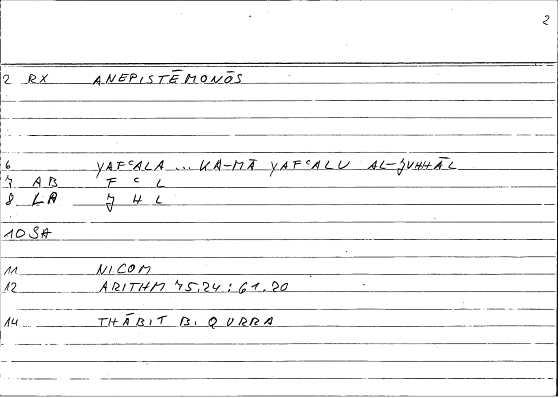 2
2 RX ANEPISTĒMONŌS
6 YAFᶜALA ... KA-MĀ YAFᶜALU AL-ǦUHHĀL
7 AB F ᶜ L
8 LA Ǧ H L
10 SA
11 NICOM
12 ARITHM 75.24 : 61.20
14 THĀBIT B. QURRA